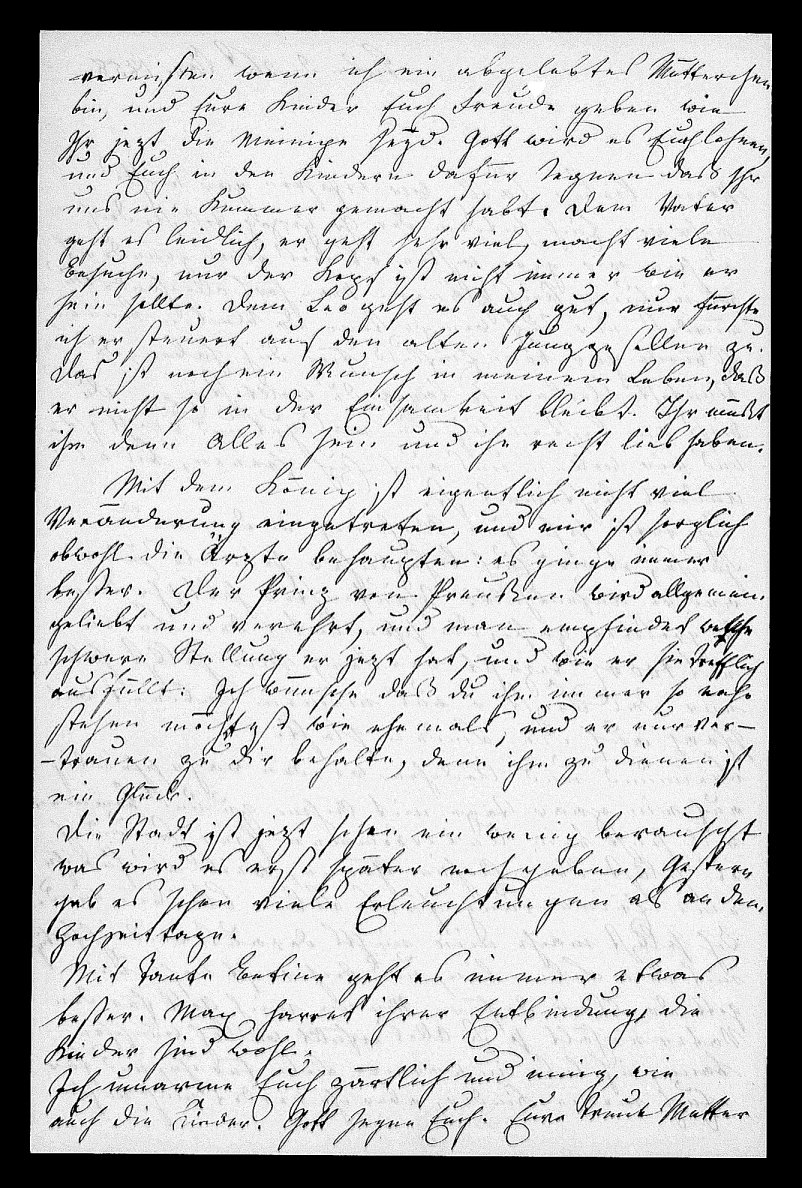 vermißen wenn ich ein abgelebtes Mütterchen
bin, und Eure Kinder Euch Freude geben wie
Ihr jezt die Meinige seyd. Gott wird es Euch lohnen,
und Euch in den Kindern dafür segnen daß Ihr
uns nie Kummer gemacht habt. Dem Vater
geht es leidlich, er geht sehr viel, macht viele
Besuche, nur der Kopf ist nicht immer wie er
sein sollte. Dem Leo geht es auch gut, nur fürchte
ich er steuert auf den alten Junggesellen zu.
Das ist noch ein Wunsch in meinem Leben, daß
er nicht so in der Einsamkeit bleibt. Ihr müßt
ihm denn Alles sein und ihn recht lieb haben.
Mit dem König ist eigentlich nicht viel
Veränderung eingetreten, und mir ist sorglich
obwohl die Ärzte behaupten: es ginge immer
besser. Der Prinz von Preussen wird allgemein
geliebt und verehrt, und man empfindet welche
schwere Stellung er jezt hat, und wie er sie trefflich
ausfüllt. Ich wünsche daß du ihm immer so nahe
stehen möchtest wie ehemals, und er nur Ver-
-trauen zu dir behalte, denn ihm zu dienen ist
ein Glück.
Die Stadt ist jezt schon ein wenig berauscht
was wird es erst später noch geben, Gestern
gab es schon viele Erleuchtungen als an dem
Hochzeittage.
Mit Tante Betine geht es immer etwas
besser. Max harret ihrer Entbindung, die
Kinder sind wohl.
Ich umarme Euch zärtlich und innig, wie
auch die Kinder. Gott segne Euch. Eure treue Mutter